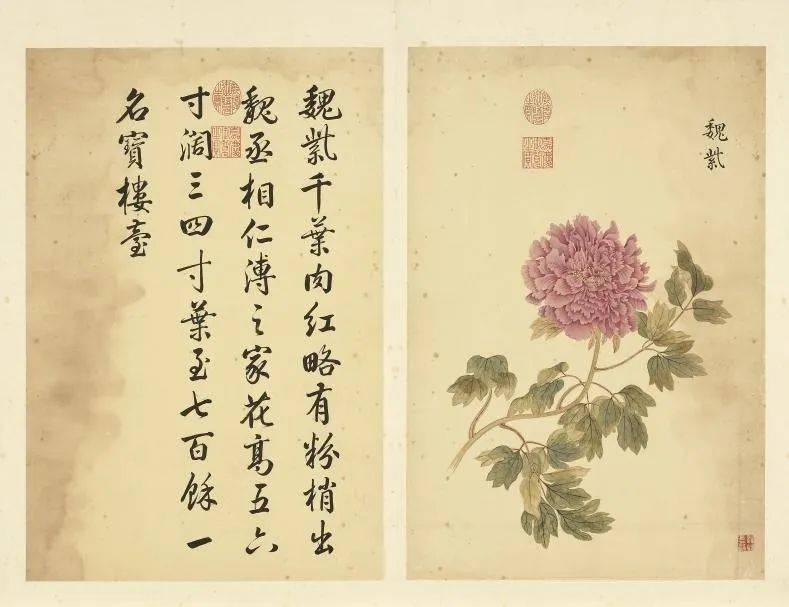 魏紫
魏紫千葉肉紅略有粉梢出
魏丞相仁溥之家花高五六
寸濶三四寸葉至七百餘一
名寶樓臺